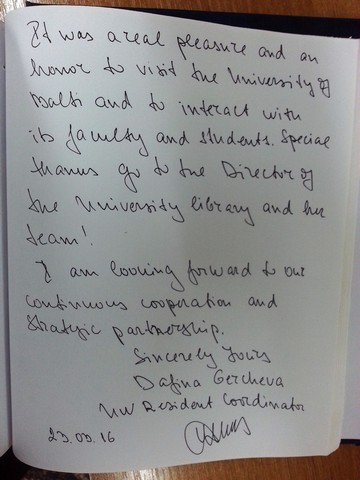 It was a real pleasure and an
honor to visit the University of
Balti and to interact with
its faculty and students. Special
thanks go to the Director of
the University library and her
team!
I am looking forward to our
continuous cooperation and
strategic partnership.
Sincerely Yours
Dafina Gercheva
UN Resident Coordinator
23.09.16